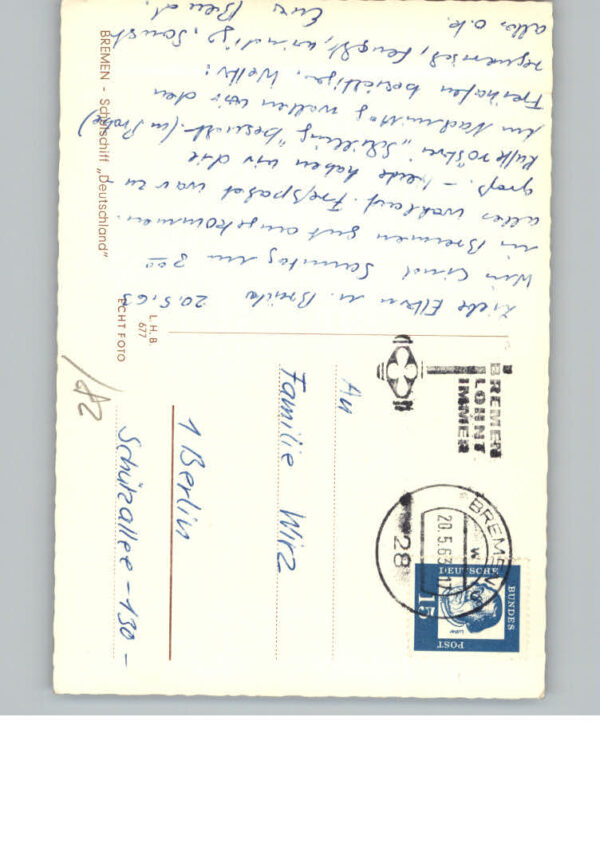 BREMEN - Schulschiff „Deutschland"
L. H. B.
677
ECHT FOTO
Liebe Eltern u. 20.5.63
Wir sind Samstag um 3 00
in Bremen gut angekommen.
alles wohlauf. Freßpaket war zu
groß. – Heute haben wir die
Kaffeerösterei „Schilling" besucht. (m. Probe)
Am Nachmittag wollen wir den
Freihafen besichtigen. Wetter:
regnerisch, feucht, windig, sonst
alles o.k. Euer Bernd.
BREMEN
LOHNT
IMMER
BREMEN
20.5.63
28
DEUTSCHE
BUNDES
POST
15
An
Familie Wirz
1 Berlin
Schützallee - 130 -